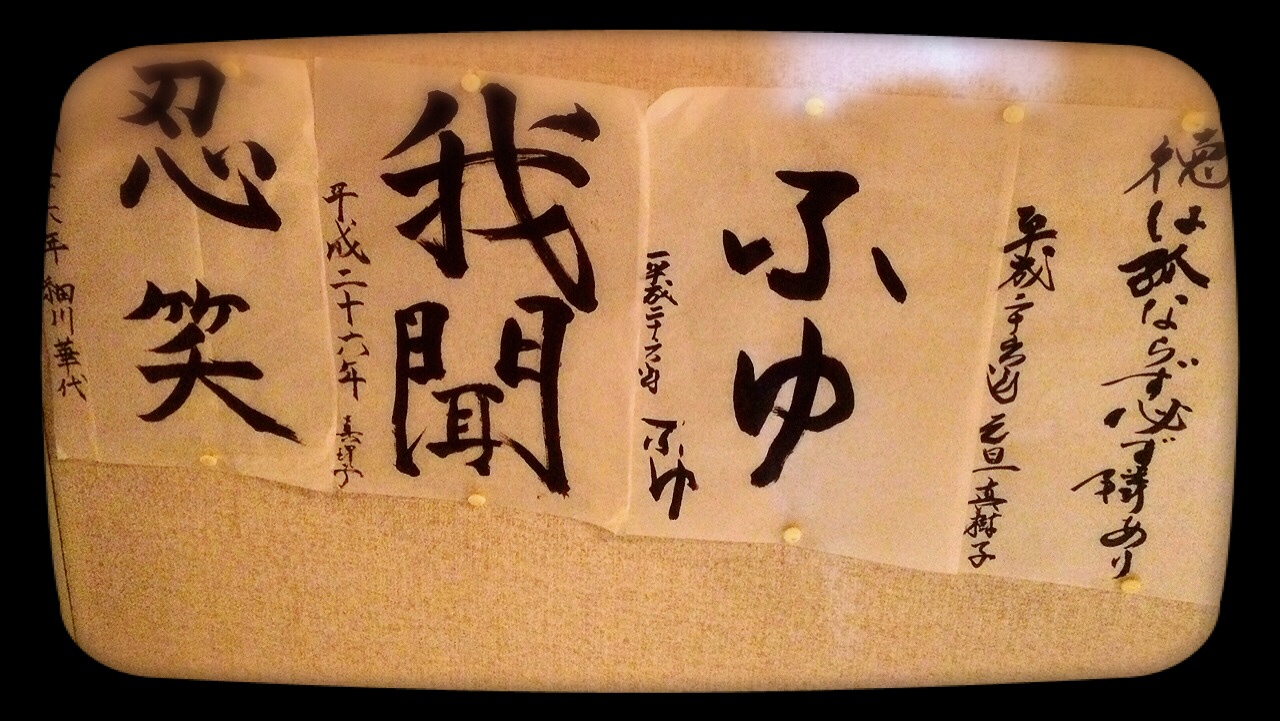 徳は孤ならず必ず隣あり
平成二十五年 元旦 真樹子
ふゆ
平成二十六年 ふゆ
我聞
平成二十六年 真理子
忍笑
六年 細川華代